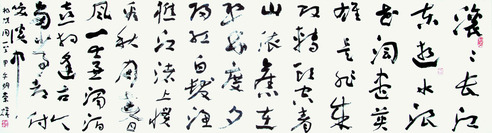 滚滚长江
东逝水浪
花淘尽英
雄是非成
败转头空青
山依旧在
几度夕
阳红白发渔
樵江渚上惯
看秋月春
风一壶浊酒
喜相逢古今
多少事都付
笑谈中